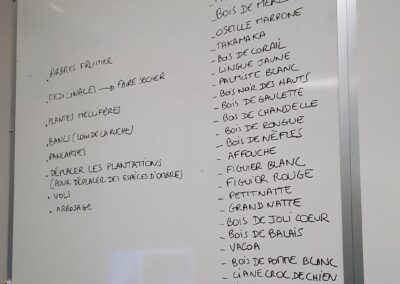 . ARBRES FRUITIER
. MEDICINALES → FAIRE SECHER
. PLANTES MELLIFÈRES
. BANCS (LOIN DE LA RUCHE)
. PANCARTES
. DÉPLACER LES PLANTATIONS
(POUR DÉPLACER DES ESPÈCES D'OMBRE)
. VOLS
. ARROSAGE
- BOIS DE
- OSEILLE MARRONE
- TAKAMAKA
- BOIS DE CORAIL
- LINGUE JAUNE
- PALMISTE BLANC
- BOIS NOIR DES HAUTS
- BOIS DE GAULETTE
- BOIS DE CHANDELLE
- BOIS DE RONGUE
- BOIS DE NÈFLES
- AFFOUCHE
- FIGUIER BLANC
- FIGUIER ROUGE
- PETIT NATTE
- GRAND NATTE
- BOIS DE JOLI COEUR
- BOIS DE BALAIS
- VACOA
- BOIS DE POMME BLANC
- LIANE CROC DE CHIEN